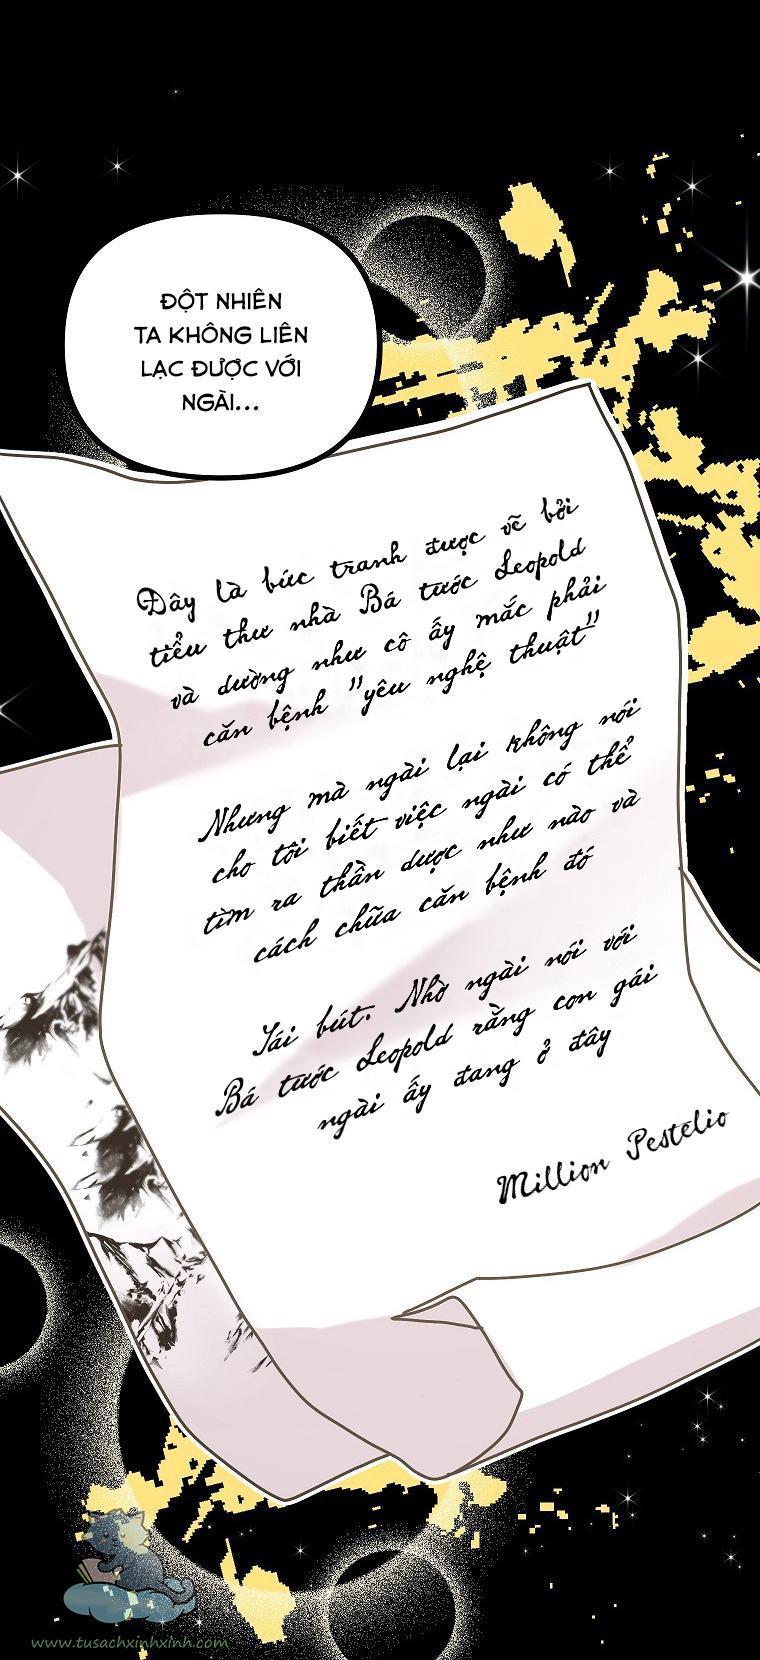 ĐỘT NHIÊN
TA KHÔNG LIÊN
LẠC ĐƯỢC VỚI
NGÀI...
Đây là bức tranh được vẽ bởi
tiểu thư nhà Bá tước Leopold
và dường như cô ấy mắc phải
căn bệnh "yêu nghệ thuật"
Nhưng mà ngài lại không nói
cho tôi biết việc ngài có thể
tìm ra thần dược như nào và
cách chữa căn bệnh đó
Tái bút. Nhờ ngài nói với
Bá tước Leopold rằng con gái
ngài ấy đang ở đây
Million Pestelio
www.tusachxinhxinh.com